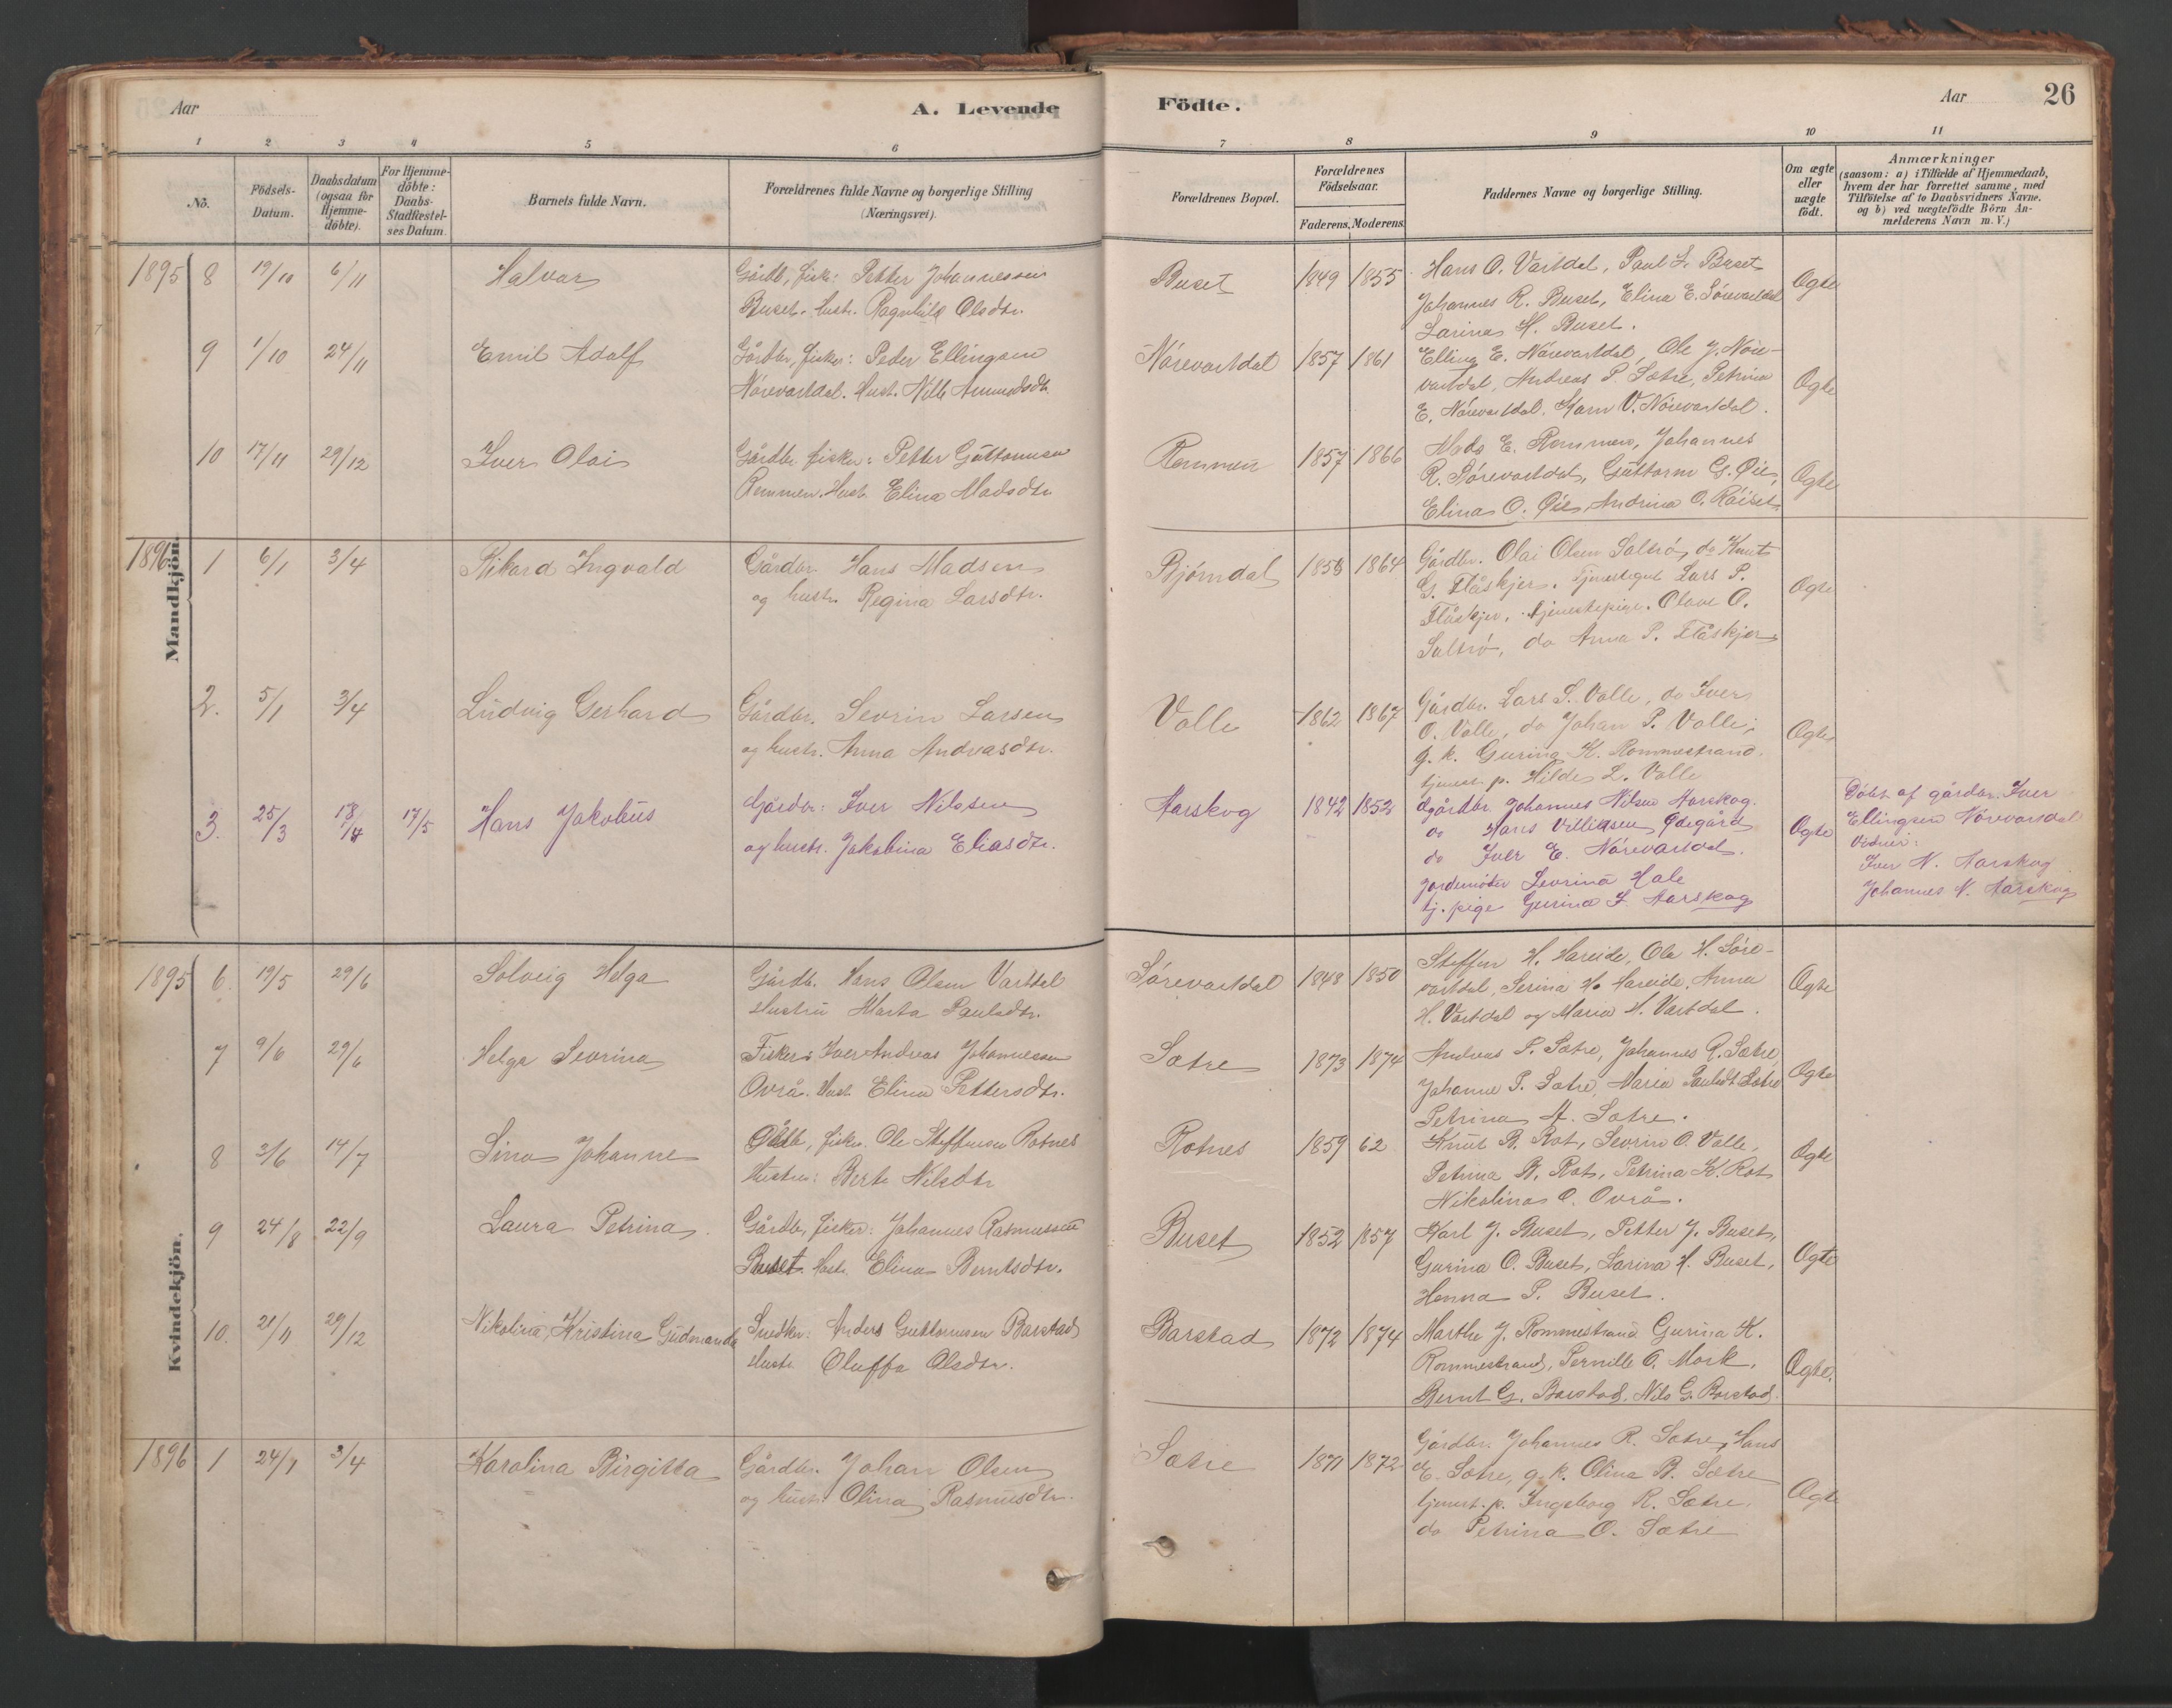 Aar
A. Levende
Födte.
Aar
26
1 2 3 4 5 6 7 8 9 10 11
Nö.
Födsels-
Datum.
Daabsdatum
(ogsaa för
Hjemme-
döbte).
For Hjemme-
döbte:
Daabs-
Stadfæstel-
ses Datum.
Barnets fulde Navn.
Forældrenes fulde Navne og borgerlige Stilling
(Næringsvei).
Forældrenes Bopæl.
Forældrenes
Födselsaar.
Faderens. Moderens.
Faddernes Navne og borgerlige Stilling.
Om ægte
eller
uægte
födt.
Anmærkninger
(saasom: a) i Tilfælde af Hjemmedaab,
hvem der har forrettet samme, med
Tilföielse af to Daabsvidners Navne.
og b) ved uægtefödte Börn An-
melderens Navn m. V.)
Mandkjön.
1895 8 19/10 6/11 Halvar
Gårdb, fisk: Petter Johannessen
Buset. Hustr. Ragnhild Olsdtr.
Buset 1849 1855
Hans O. Vartdal, Paul L. Buset
Johannes R. Buset, Elina E. Sørevartdal
Larina H. Buset.
Ægte
9 1/10 24/11 Emil Adolf
Gårdbr, fisker: Peder Ellingsen
Nørevartdal. Hust. Nille Amundsdtr.
Nørevartdal 1857 1861
Elling E. Nørevartdal, Ole J. Nøre-
vartdal, Andreas P. Sætre, Petrina
E. Nørevartdal. Karn V. Nørevartdal.
Ægte
10 17/11 29/12 Iver Olai
Gårdbr. fisker: Petter Guttormsen
Rommen. Hust. Elina Madsdtr
Rommen 1857 1866
Mads E. Rommen, Johannes
R. Sørevartdal, Guttorm G. Øie,
Elina O. Øie, Andrina O. Røiset
Ægte
1896 1 6/1 3/4 Rikard Ingvald
Gårdbr. Hans Madsen
og hustr. Regina Larsdtr.
Bjørndal 1858 1864
Gårdbr. Olai Olsen Saltrø, do Knut
G. Flåskjer. Tjenestegut Lars P.
Flåskjer. tjenestepige. Olave O.
Saltrø, do Anna P. Flåskjer
Ægte
2. 5/1 3/4 Ludvig Gerhard
Gårdbr. Sevrin Larsen
og hustr. Anna Andreasdtr.
Valle 1862 1867
Gårdbr. Lars S. Valle, do Iver
O. Valle, do Johan P. Valle;
g. k. Gurina K. Rommestrand.
tjenest. p. Hilde L. Valle
Ægte
3. 25/3 18/4 17/5 Hans Jakobus
Gårdbr: Iver Nilssen
og hustr. Jakobina Eliasdtr.
Aarskog 1842 1852
gårdbr. Johannes Nilsen Aarskog.
do Hans Villiksen Ødegård
do Iver E. Nørevartdal.
Jordemoder Sevrina Hale
tj. pige Gurina I. Aarskog
Ægte
Døbt af gårdbr. Iver
Ellingsen Nørevartdal
Vidner:
Iver N. Aarskog
Johannes N. Aarskog
Kvindekjön.
1895 6. 19/5 29/6 Solveig Helga
Gårdb. Hans Olsen Vartdal
Hustru Marta Paulsdtr.
Sørevartdal 1848 1850
Steffen H. Hareide, Ole H. Søre-
vartdal, Serina H. Hareide, Anna
H. Vartdal og Maria H. Vartdal.
Ægte
7 9/6 29/6 Helga Sevrina
Fisker: Iver Andreas Johannessen
Ovrå. Hust. Elina Pettersdtr.
Sætre 1873 1874
Andreas P. Sætre, Johannes R. Sætre
Johanne P. Sætre, Maria Paulsdt. Sætre
Petrina A. Sætre.
Ægte
8 3/6 14/7 Sina Johanne
fisker. Ole Steffensen Rotnes
Hustru: Berte Nilsdtr
Rotnes 1859 62
Knut B. Rot, Sevrin O. Valle,
Petrina B. Rot, Petrina K. Rot
Nikolina O. Ovrå.
Ægte
9 24/8 22/9 Laura Petrina
Gårdbr, fisker: Johannes Rasmussen
Buset. Hust. Elina Berntsdtr.
Buset 1852 1857
Karl J. Buset, Petter J. Buset,
Gurina O. Buset, Larina H. Buset,
Henna P. Buset.
Ægte
10. 21/11 29/12 Nikolina Kristina Gudmunda
Snedker: Anders Guttormsen Barstad
Hustr. Oluffa Olsdtr.
Barstad 1872 1874
Marthe J. Rommestrand Gurina K.
Rommestrand, Pernille O. Mork,
Bernt G. Barstad. Nils G. Barstad.
Ægte.
1896 1 24/1 3/4 Karolina Birgitta
Gårdbr. Johan Olsen
og hustr. Olina Rasmusdtr.
Sætre 1871 1872
Gårdbr. Johannes R. Sætre, Hans
E. Sætre, g. k. Olina B. Sætre
tjenest. p. Ingeborg R. Sætre.
do Petrina O. Sætre
Ægte